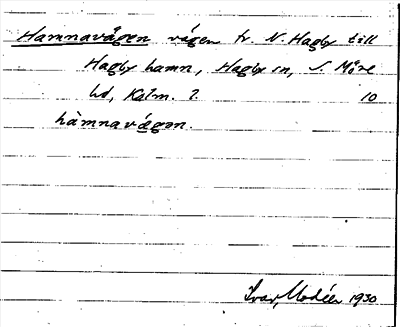 Hamnavägen vägen fr. N. Hagby till
Hagby hamn, Hagby sn, S. Möre
hd, Kalm. l. 10
hàmnavägen.
Ivar Modéer 1930